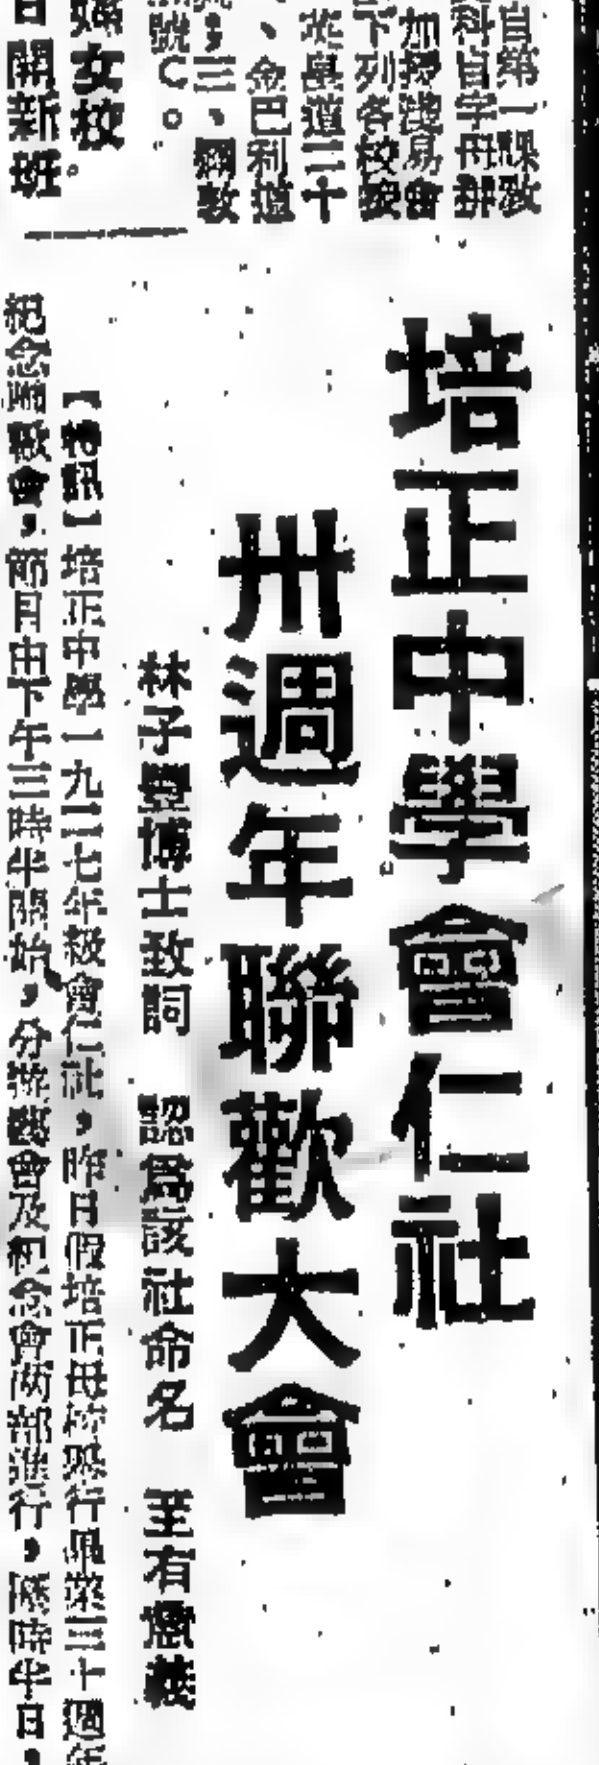 自第一課教
科
加
易會
下列各校
道三十
、金巴利道
三、
號C。
女校。
日開新班
培正中學會仁社
卅週年聯歡大會
林子豐博士致詞 認爲該社命名 至有意義
【特訊】培正中學一九二七年級會仁社，昨日假培正母校舉行畢業三十週年
紀念聯歡會，節目由下午三時半開始，分遊藝會及紀念會兩部進行，歷時半日，